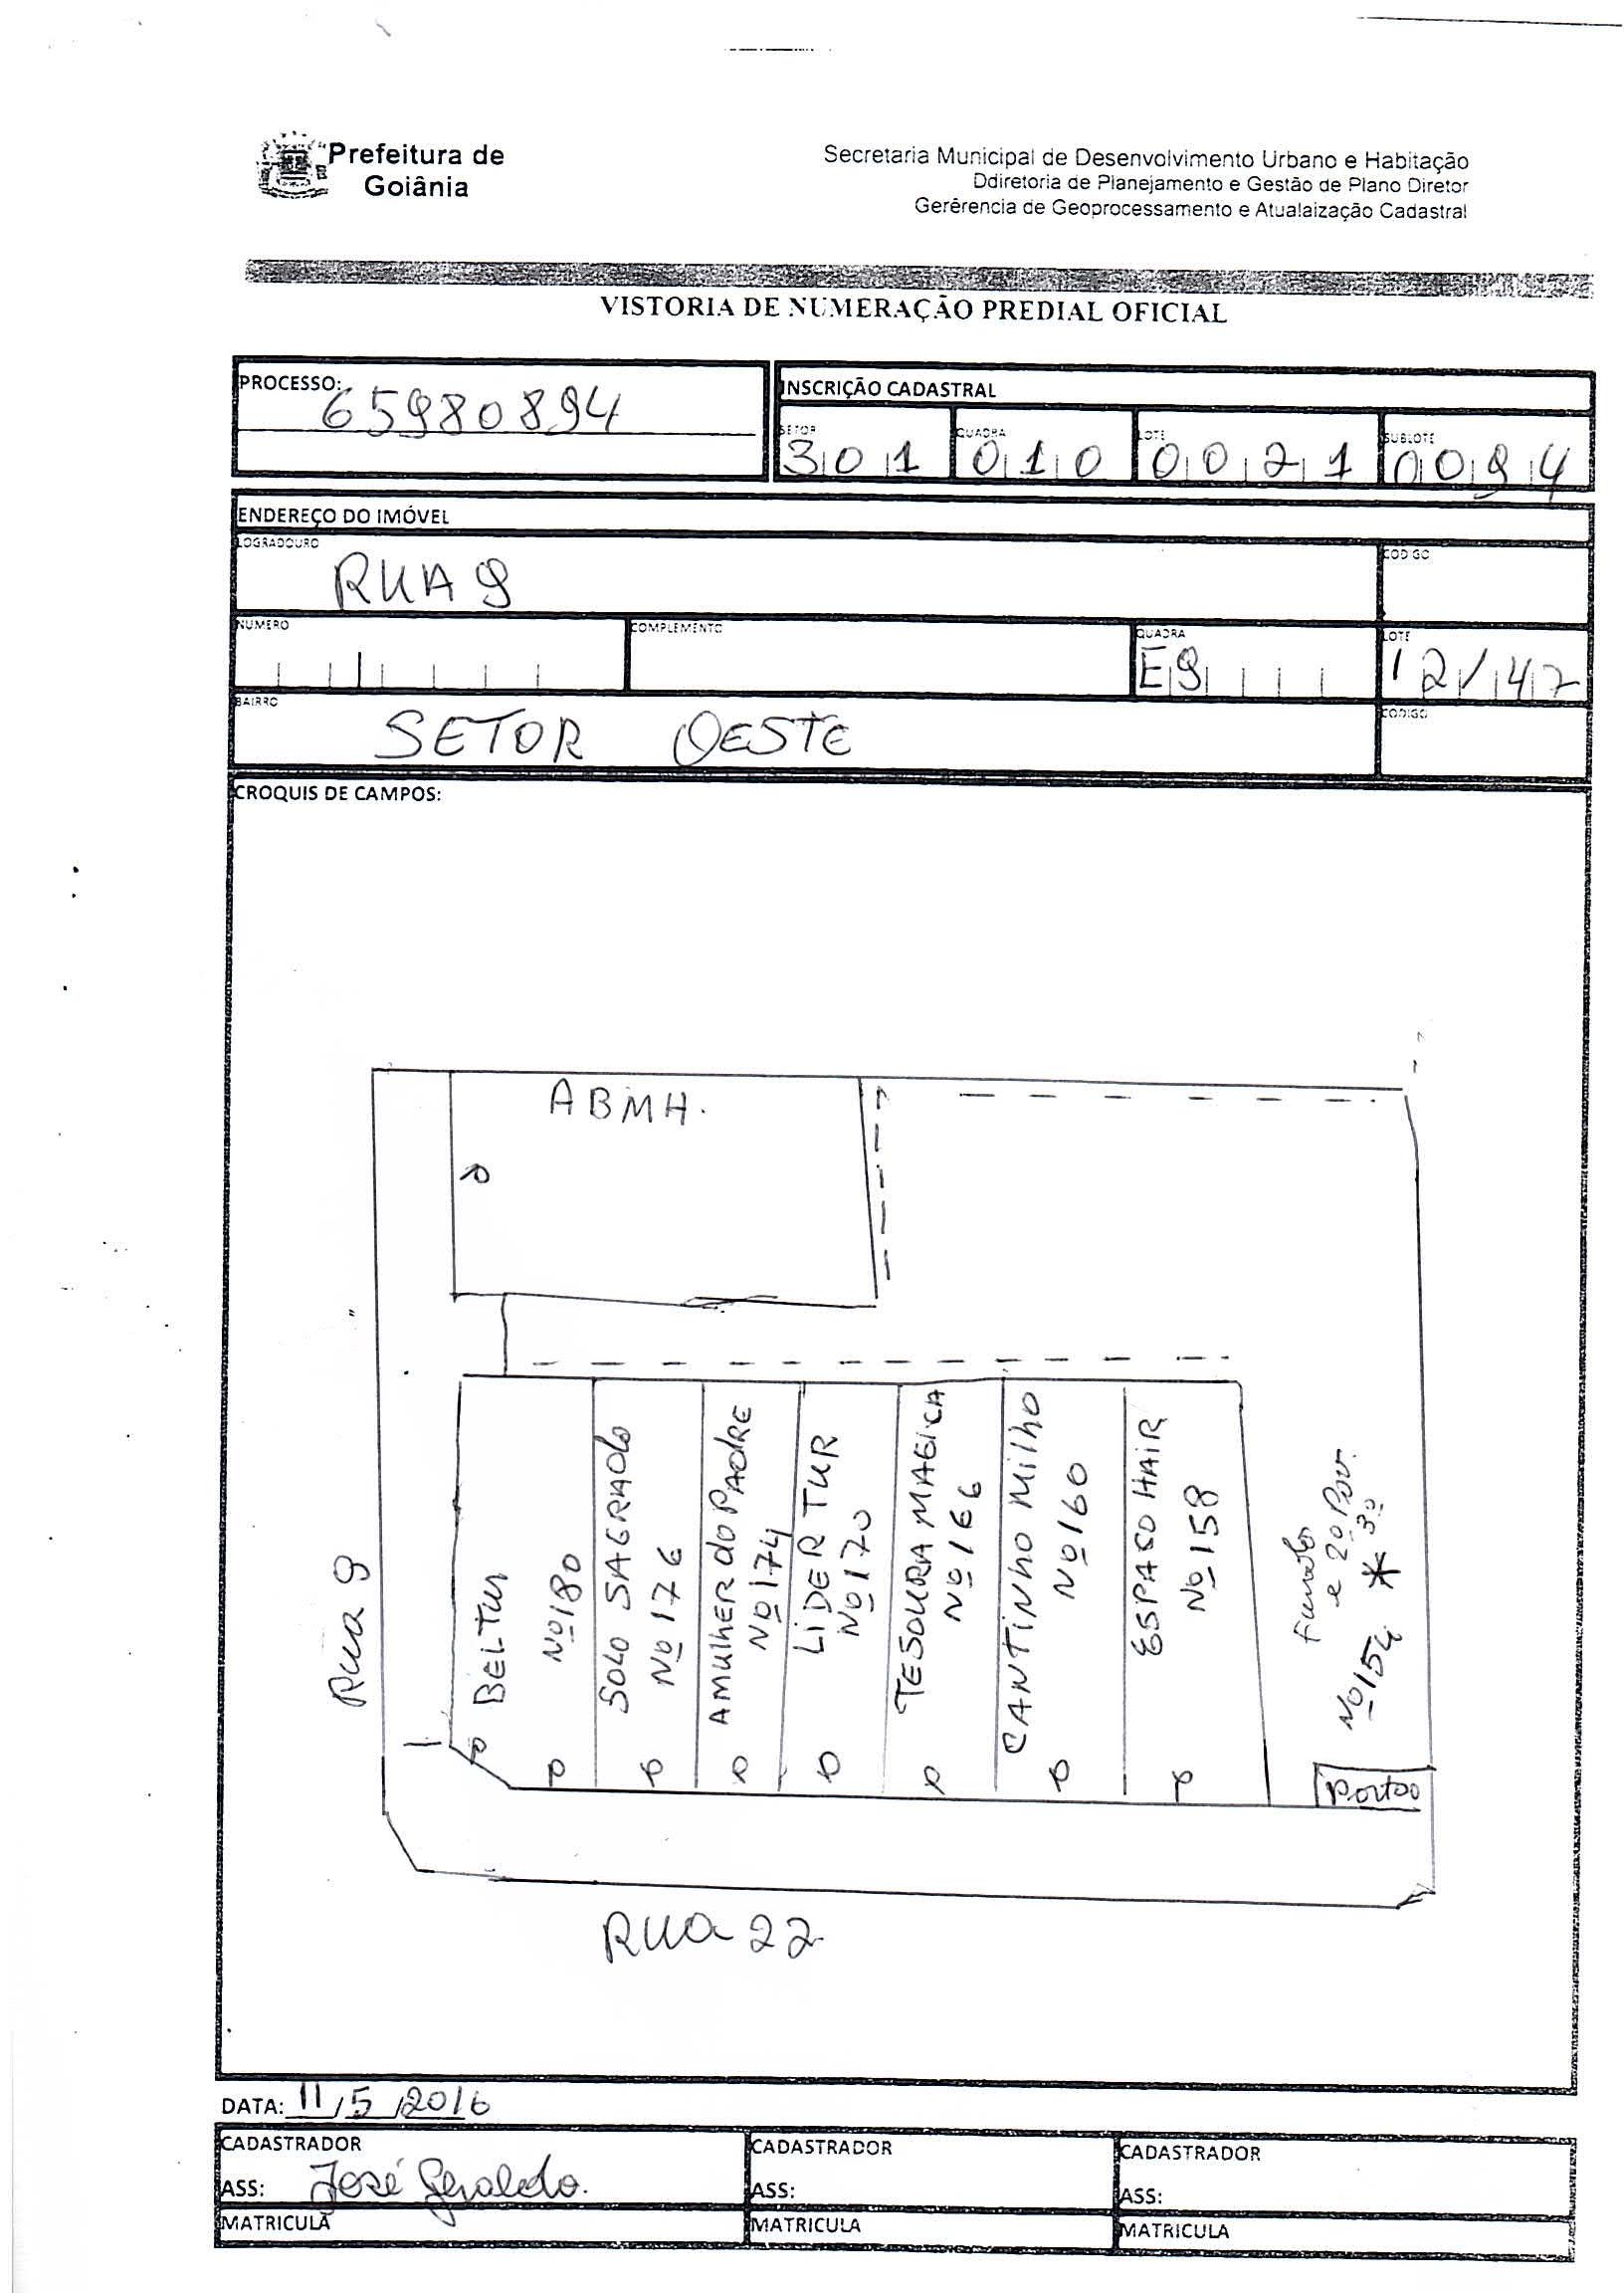 Prefeitura de
Goiânia
Secretaria Municipal de Desenvolvimento Urbano e Habitação
Ddiretoria de Planejamento e Gestão de Plano Diretor
Gerêrencia de Geoprocessamento e Atualaização Cadastral
VISTORIA DE NUMERAÇÃO PREDIAL OFICIAL
PROCESSO:
65980894
INSCRIÇÃO CADASTRAL
SETOR QUADRA LOTE SUBLOTE
301 010 0021 0094
ENDEREÇO DO IMÓVEL
LOGRADOURO CODIGO
RUA 9
NUMERO COMPLEMENTO QUADRA LOTE
E9 12/47
BAIRRO CODIGO
SETOR OESTE
CROQUIS DE CAMPOS:
ABMH.
BELTUR
Nº 180
SOLO SAGRADO
Nº 176
AMULHER do PADRE
Nº 174
LiDER TUR
Nº 170
TESOURA MAGICA
Nº 166
CANTiNho Milho
Nº 160
ESPASO HAiR
Nº 158
Fundos
e 2º Pav.
* 3º
Nº 154
Portão
Rua 9
Rua 22
DATA: 11/5/2016
CADASTRADOR CADASTRADOR CADASTRADOR
ASS: José Geraldo. ASS: ASS:
MATRICULA MATRICULA MATRICULA